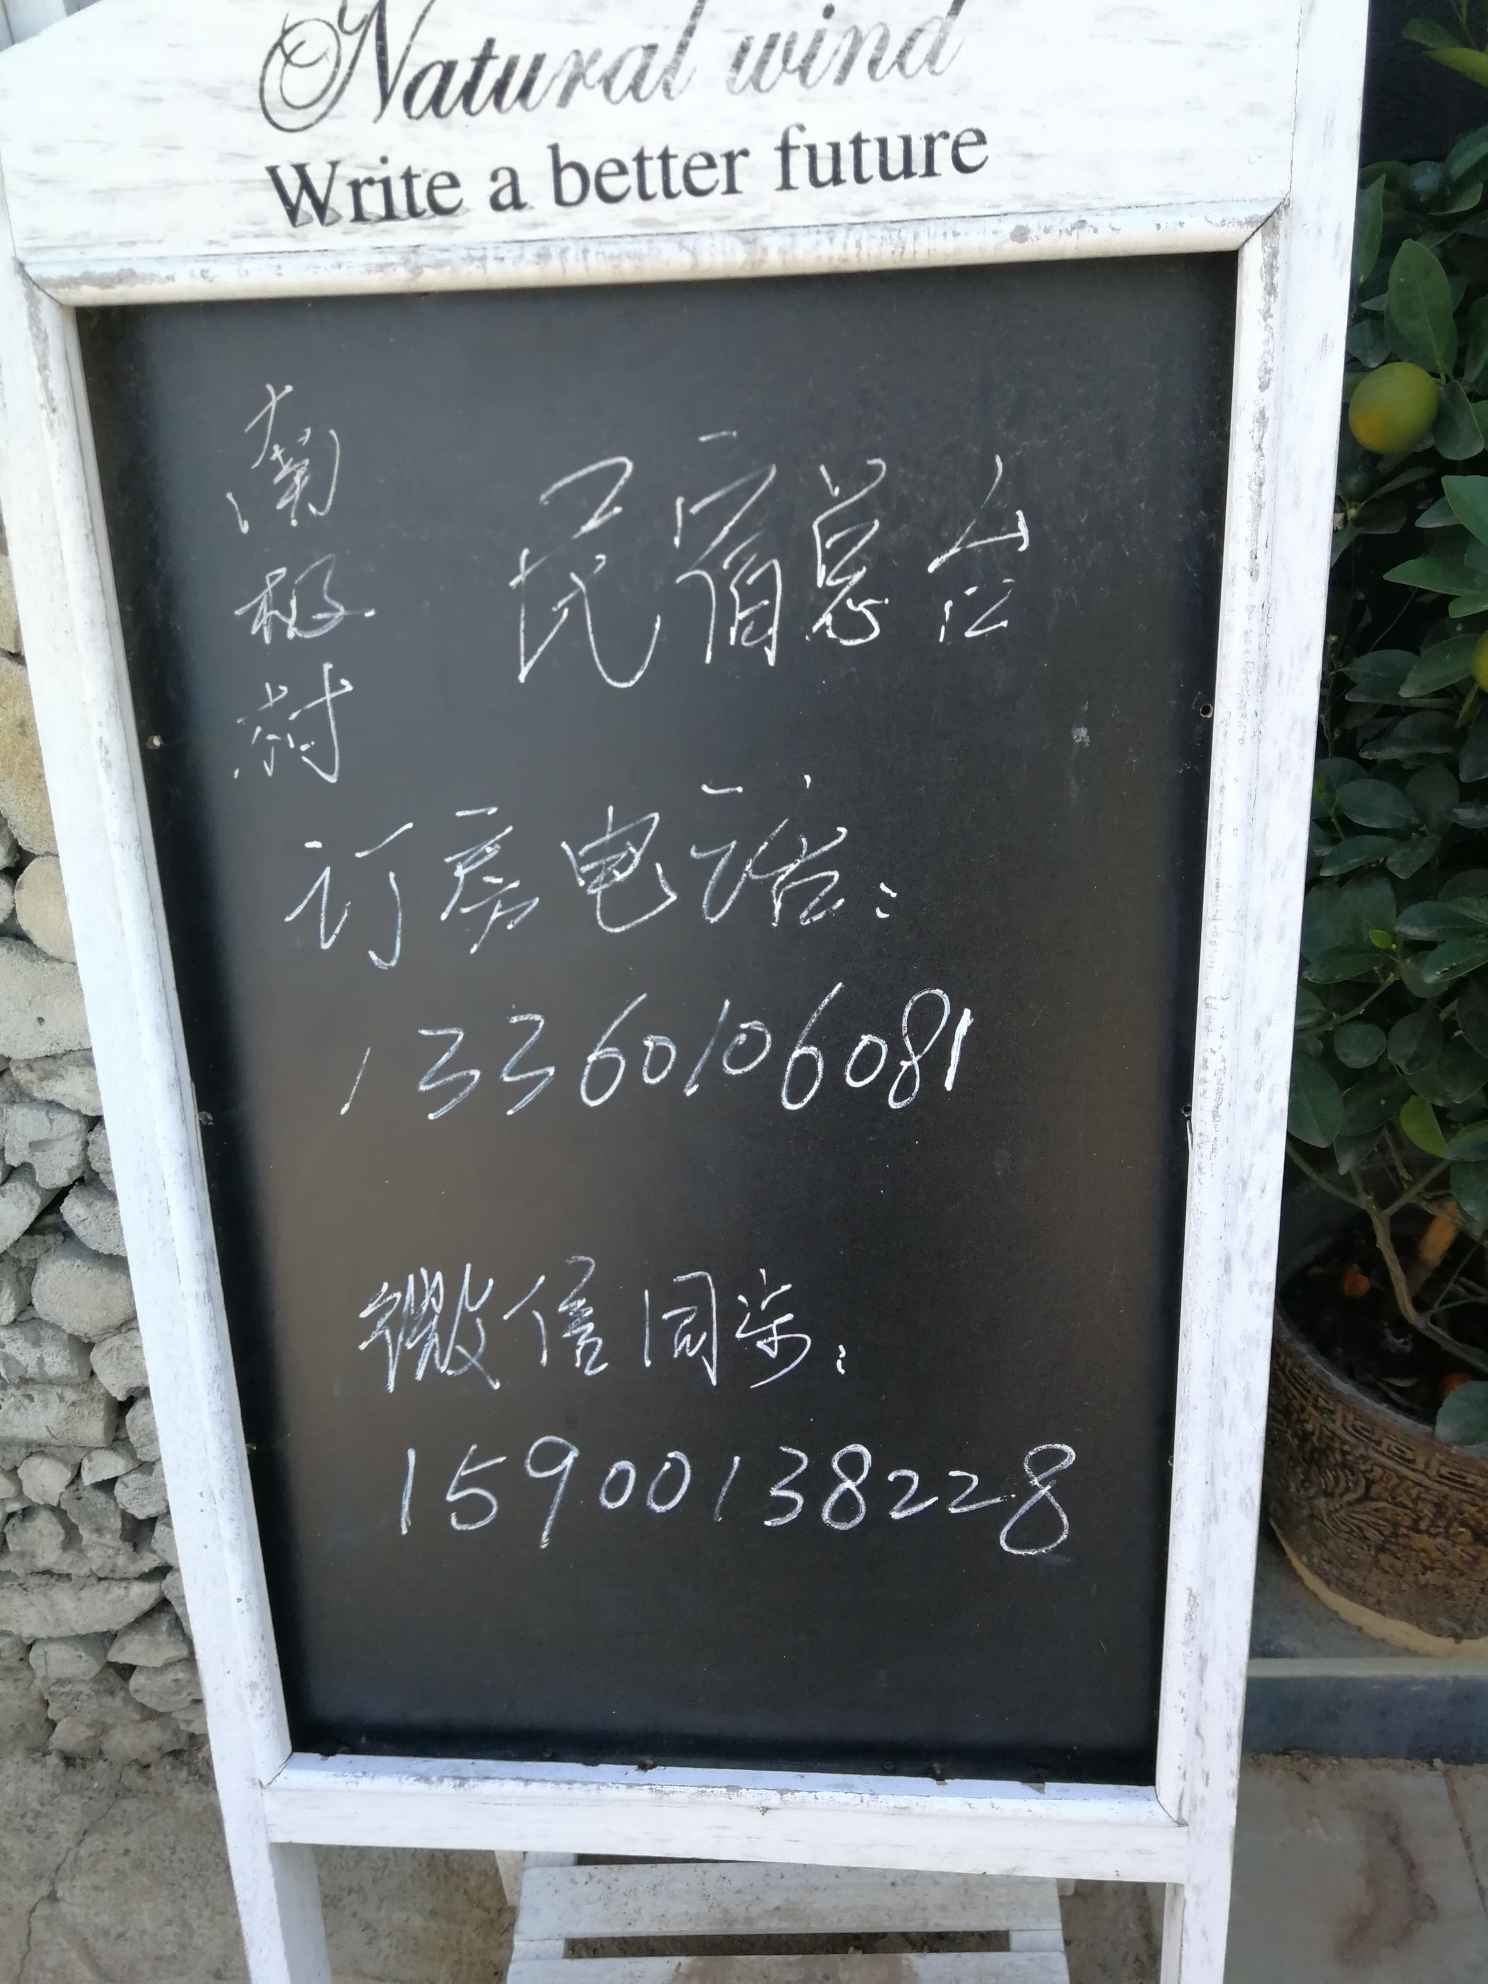 Natural wind
Write a better future
南极村
民宿总台
订房电话:
13360106081
微信同步:
15900138228